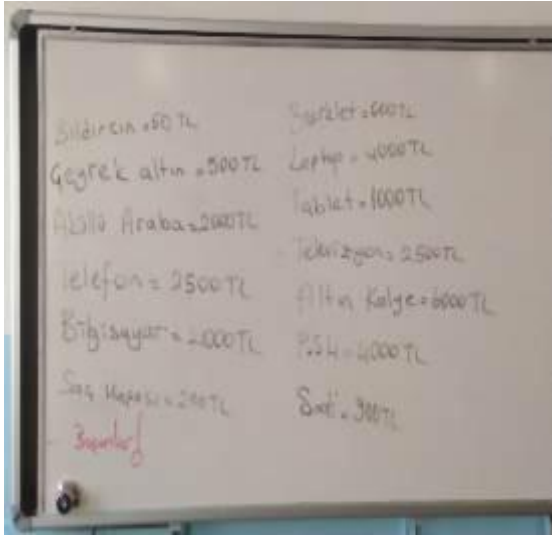 Bildircin = 50 TL
Çeyrek altın = 500TL
Akıllı Araba = 2000TL
Telefon = 2500TL
Bilgisayar = 2000TL
Saç = 200TL
Başarılar
= 600TL
Laptop = 4000TL
Tablet = 1000TL
Televizyon = 2500TL
Altın Kolye = 6000TL
PS4 = 4000TL
Saat = 300TL